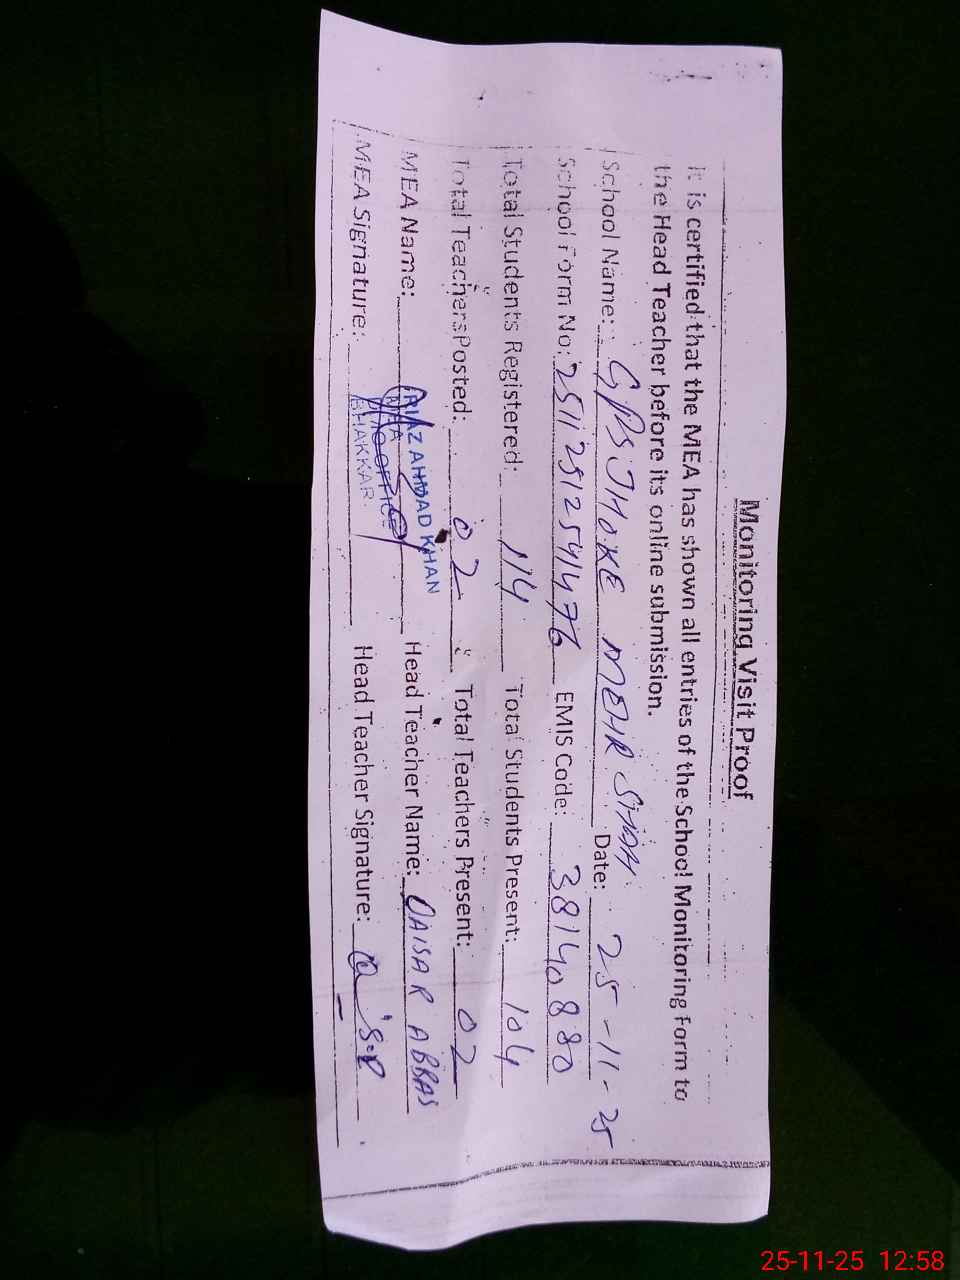 Monitoring Visit Proof
It is certified that the MEA has shown all entries of the School Monitoring Form to
the Head Teacher before its online submission.
School Name: GPS JHOKE MEHR SHAH Date: 25-11-25
School Form No: 251125125541476 EMIS Code: 38140880
Total Students Registered: 114 Total Students Present: 104
Total Teachers Posted: 02 Total Teachers Present: 02
MEA Name: RIAZ AHMAD KHAN Head Teacher Name: QAISAR ABBAS
MEA
OFFICE
BHAKKAR
MEA Signature: Head Teacher Signature:
25-11-25 12:58